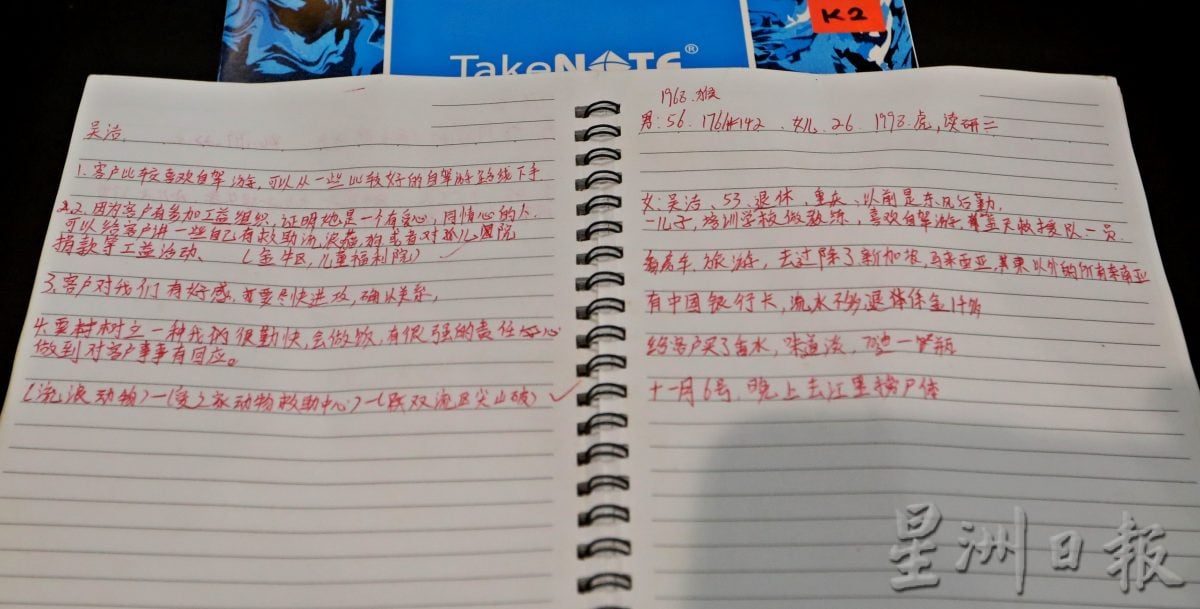 K2
TakeNOTE®
吴洁.
1.客户比较喜欢自驾游,可以从一些比较好的自驾游路线下手
2.因为客户有参加工益组织、证明她是一个有爱心,同情心的人.
可以给客户讲一些自己有救助流浪猫,狗或者对孤儿园院
捐款等工益活动、(金牛区,儿童福利院)
3.客户对我们有好感,要尽快进攻,确认关系,
4.要树立一种我们很勤快,会做饭,有很强的责任心
做到对客户事事有回应。
(流浪动物)—(爱之家动物救助中心)—(双流区尖山坡)
1968.猴
男:56.176 142、女儿.26.1998.虎,读研三
女:吴洁、53.退休,重庆,以前是东风后勤,
一儿子,培训学校做教练,喜欢自驾游,蓝天救援队一员.
旅游,去过除了新加坡,马来西亚,以外的所有东南亚
有中国银行卡,流水不多,退休
给客户买了香水,味道淡,一瓶
十一月6号.晚上去江里
星洲日報